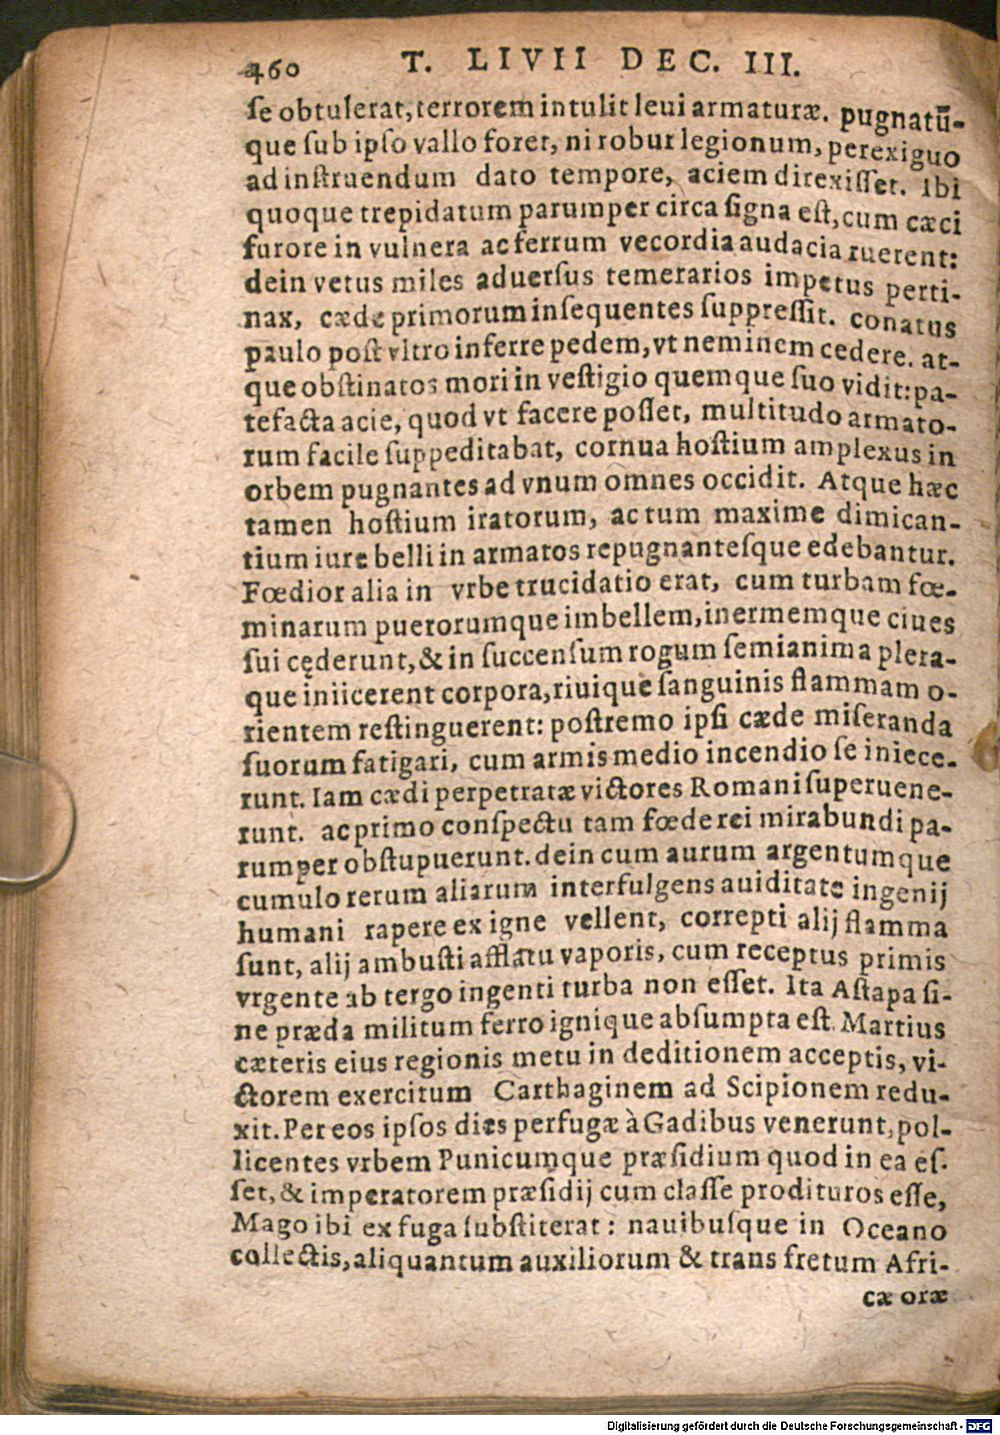 460 T. LIVII DEC. III.
ſe obtulerat, terrorem intulit leui armaturæ. pugnatū-
que ſub ipſo vallo foret, ni robur legionum, perexiguo
ad inſtruendum dato tempore, aciem direxiſſet. Ibi
quoque trepidatum parumper circa ſigna eſt, cum cæci
furore in vulnera ac ferrum vecordia audacia ruerent:
dein vetus miles aduerſus temerarios impetus perti-
nax, cæde primorum inſequentes ſuppreſſit. conatus
paulo poſt vltro inferre pedem, vt neminem cedere. at-
que obſtinatos mori in veſtigio quemque ſuo vidit: pa-
tefacta acie, quod vt facere poſſet, multitudo armato-
rum facile ſuppeditabat, cornua hoſtium amplexus in
orbem pugnantes ad vnum omnes occidit. Atque hæc
tamen hoſtium iratorum, ac tum maxime dimican-
tium iure belli in armatos repugnanteſque edebantur.
Fœdior alia in vrbe trucidatio erat, cum turbam fœ-
minarum puerorumque imbellem, inermemque ciues
ſui cęderunt, & in ſuccenſum rogum ſemianima plera-
que iniicerent corpora, riuique ſanguinis flammam o-
rientem reſtinguerent: poſtremo ipſi cæde miſeranda
ſuorum fatigari, cum armis medio incendio ſe iniece-
runt. Iam cædi perpetratæ victores Romani ſuperuene-
runt. ac primo conſpectu tam fœde rei mirabundi pa-
rumper obſtupuerunt. dein cum aurum argentumque
cumulo rerum aliarum interfulgens auiditate ingenij
humani rapere ex igne vellent, correpti alij flamma
ſunt, alij ambuſti afflatu vaporis, cum receptus primis
vrgente ab tergo ingenti turba non eſſet. Ita Aſtapa ſi-
ne præda militum ferro ignique abſumpta eſt. Martius
cæteris eius regionis metu in deditionem acceptis, vi-
ctorem exercitum Carthaginem ad Scipionem redu-
xit. Per eos ipſos dies perfugæ à Gadibus venerunt, pol-
licentes vrbem Punicumque præſidium quod in ea eſ-
ſet, & imperatorem præſidij cum claſſe prodituros eſſe,
Mago ibi ex fuga ſubſtiterat: nauibuſque in Oceano
collectis, aliquantum auxiliorum & trans fretum Afri-
cæ oræ
Digitalisierung gefördert durch die Deutsche Forschungsgemeinschaft - DFG